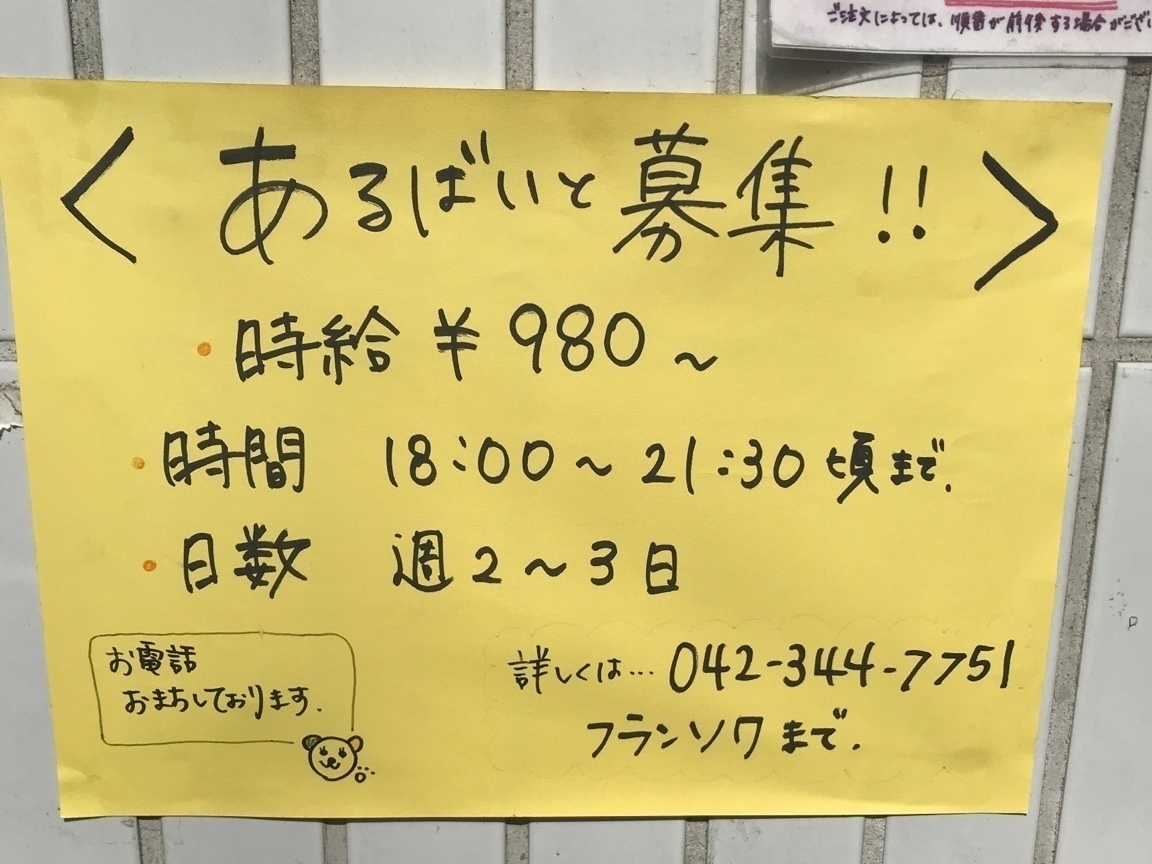 ご注文によっては、順番が前後する場合がござい
〈 あるばいと募集!! 〉
・時給 ¥980~
・時間 18:00~21:30頃まで.
・日数 週2~3日
お電話
おまちしております.
詳しくは… 042-344-7751
フランソワまで.